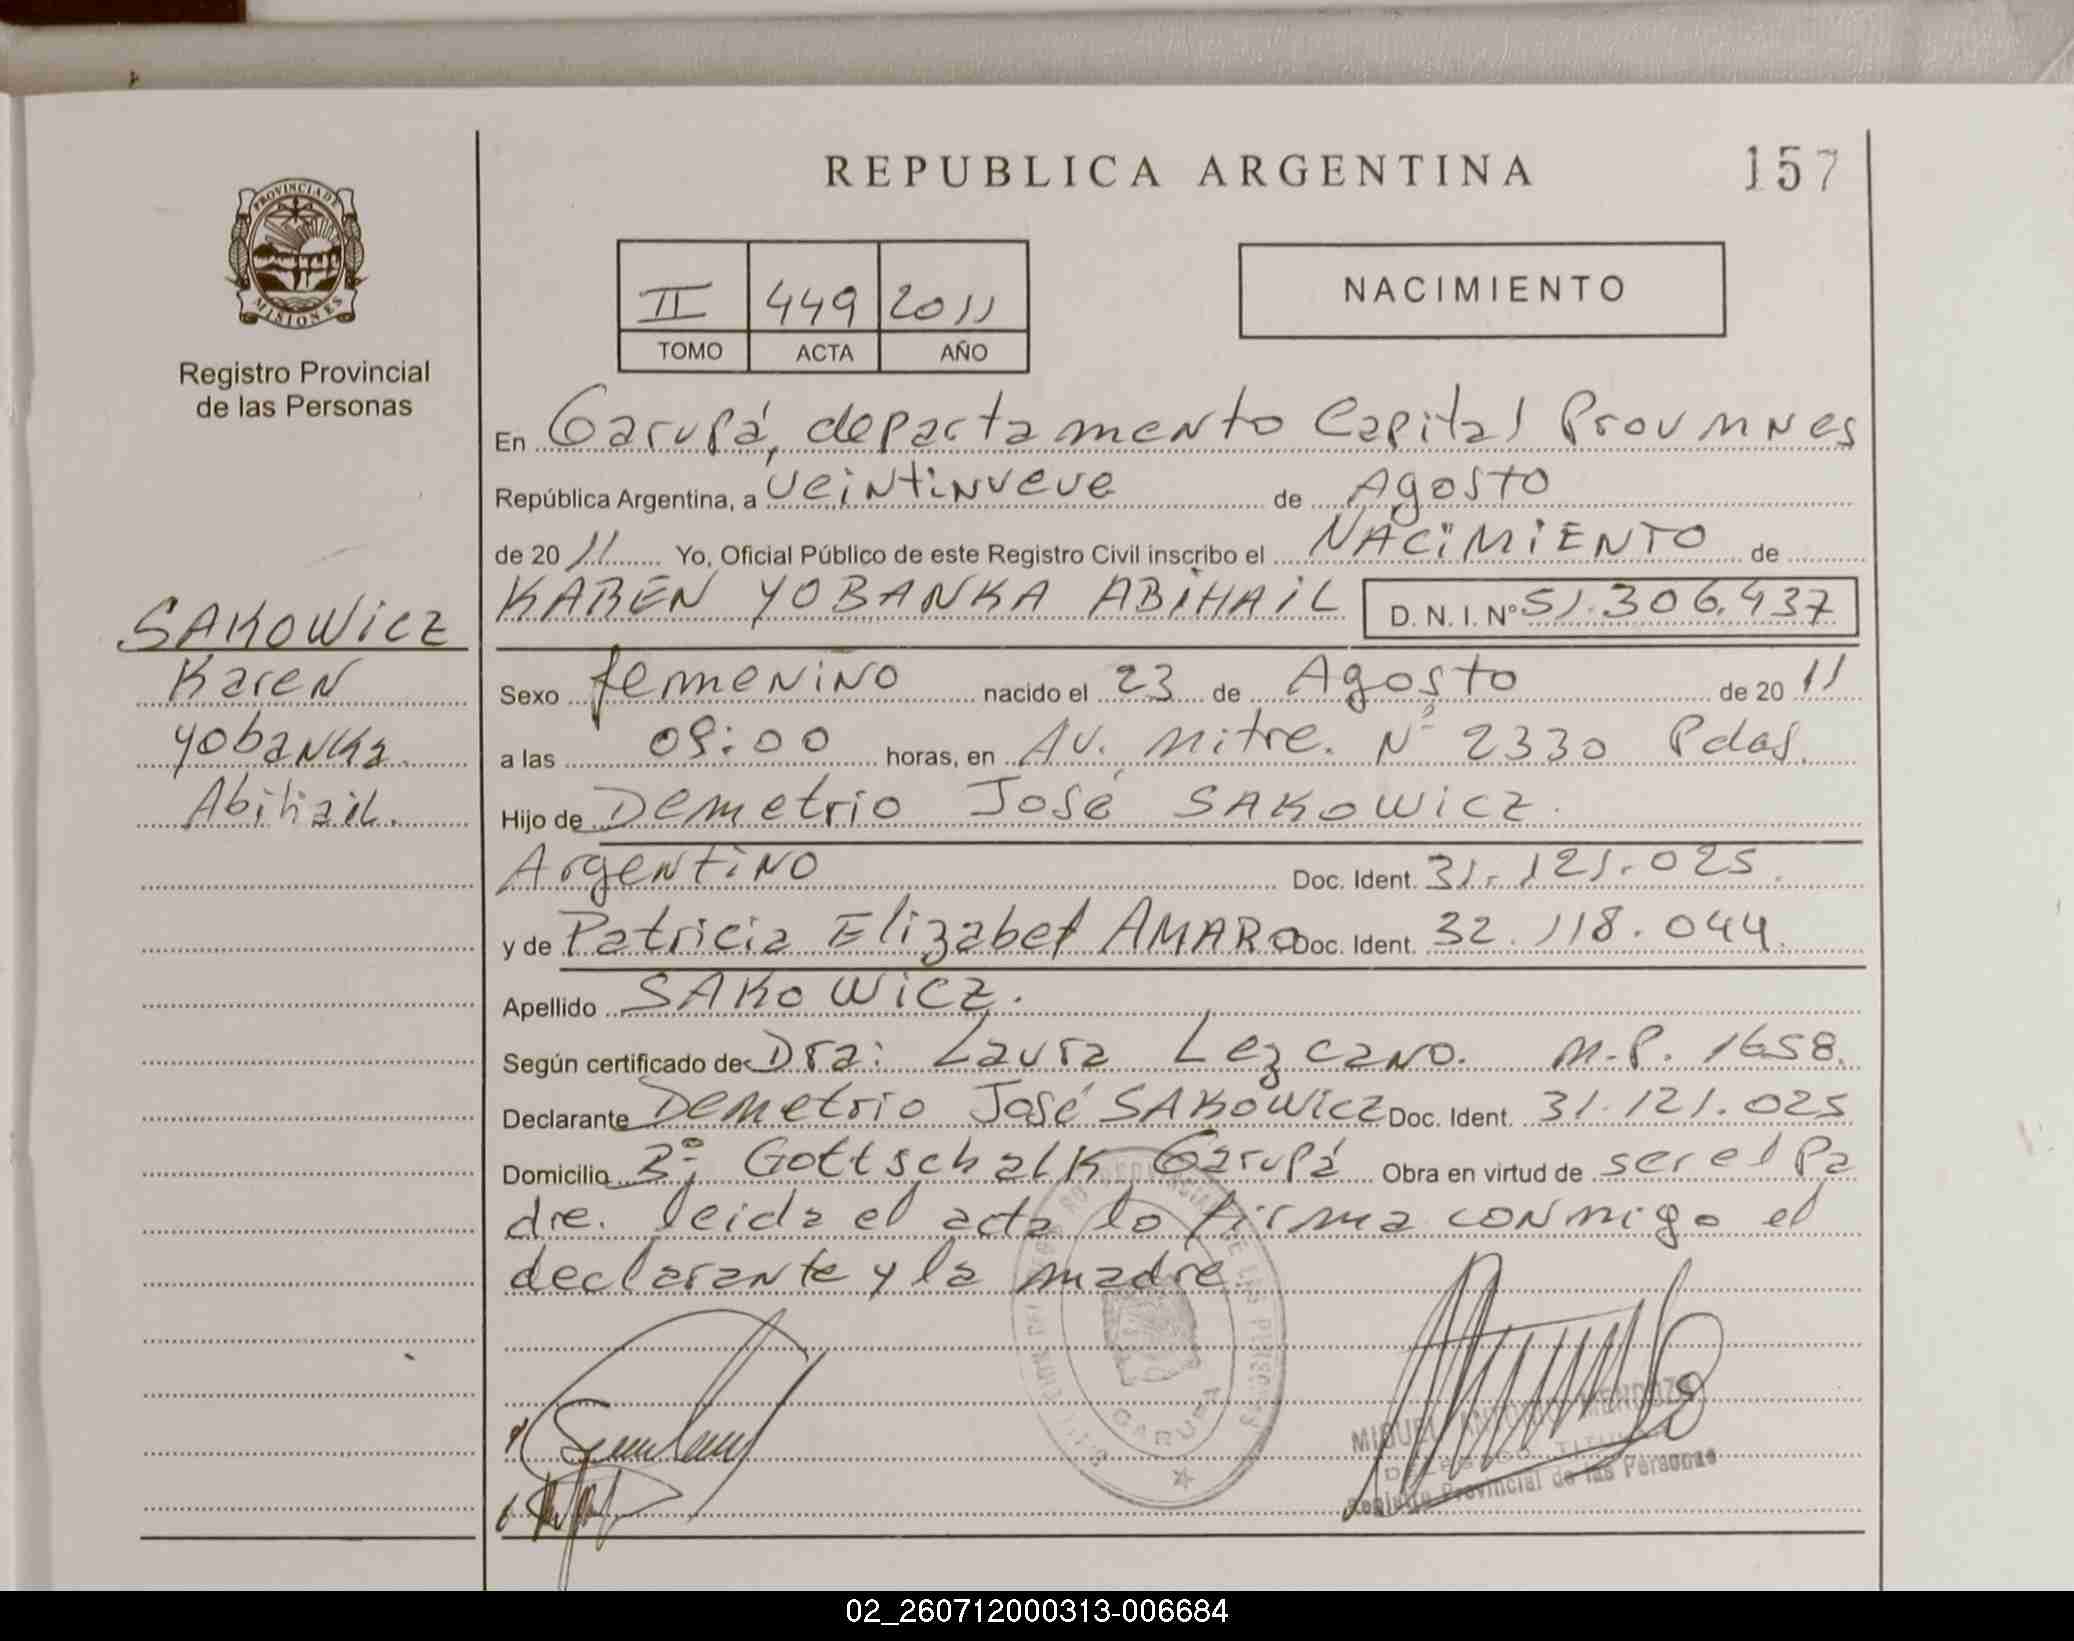 157
REPUBLICA ARGENTINA
PROVINCIA DE
MISIONES
Registro Provincial
de las Personas
II 449 2011
TOMO ACTA AÑO
NACIMIENTO
En Garupá, departamento Capital Prov Mnes
República Argentina, a Veintinueve de Agosto
de 2011 Yo, Oficial Público de este Registro Civil inscribo el NACIMIENTO de
KAREN YOBANKA ABIHAIL D. N. I. Nº 51.306.437
SAKOWicz
Karen
Yobanka.
Abihail.
Sexo femenino nacido el 23 de Agosto de 2011
a las horas, en Av. mitre. Nº 2330 Pdas.
Hijo de Demetrio José SAKOWicz.
Argentino Doc. Ident. 31.121.025.
y de Patricia Elizabet AMARO Doc. Ident. 32.118.044.
Apellido SAKOWicz.
Según certificado de Dra: Laura Lezcano. M.P. 1658.
Declarante Demetrio José SAKOWicz Doc. Ident. 31.121.025
Domicilio Bº; Gottschalk Garupá Obra en virtud de ser el Pa
dre. leida el acta lo firma conmigo el
declarante y la madre
GARUPA
MIGUEL ANTONIO MENDOZA
DELEGADO TITULAR
Registro Provincial de las Personas
02_260712000313-006684